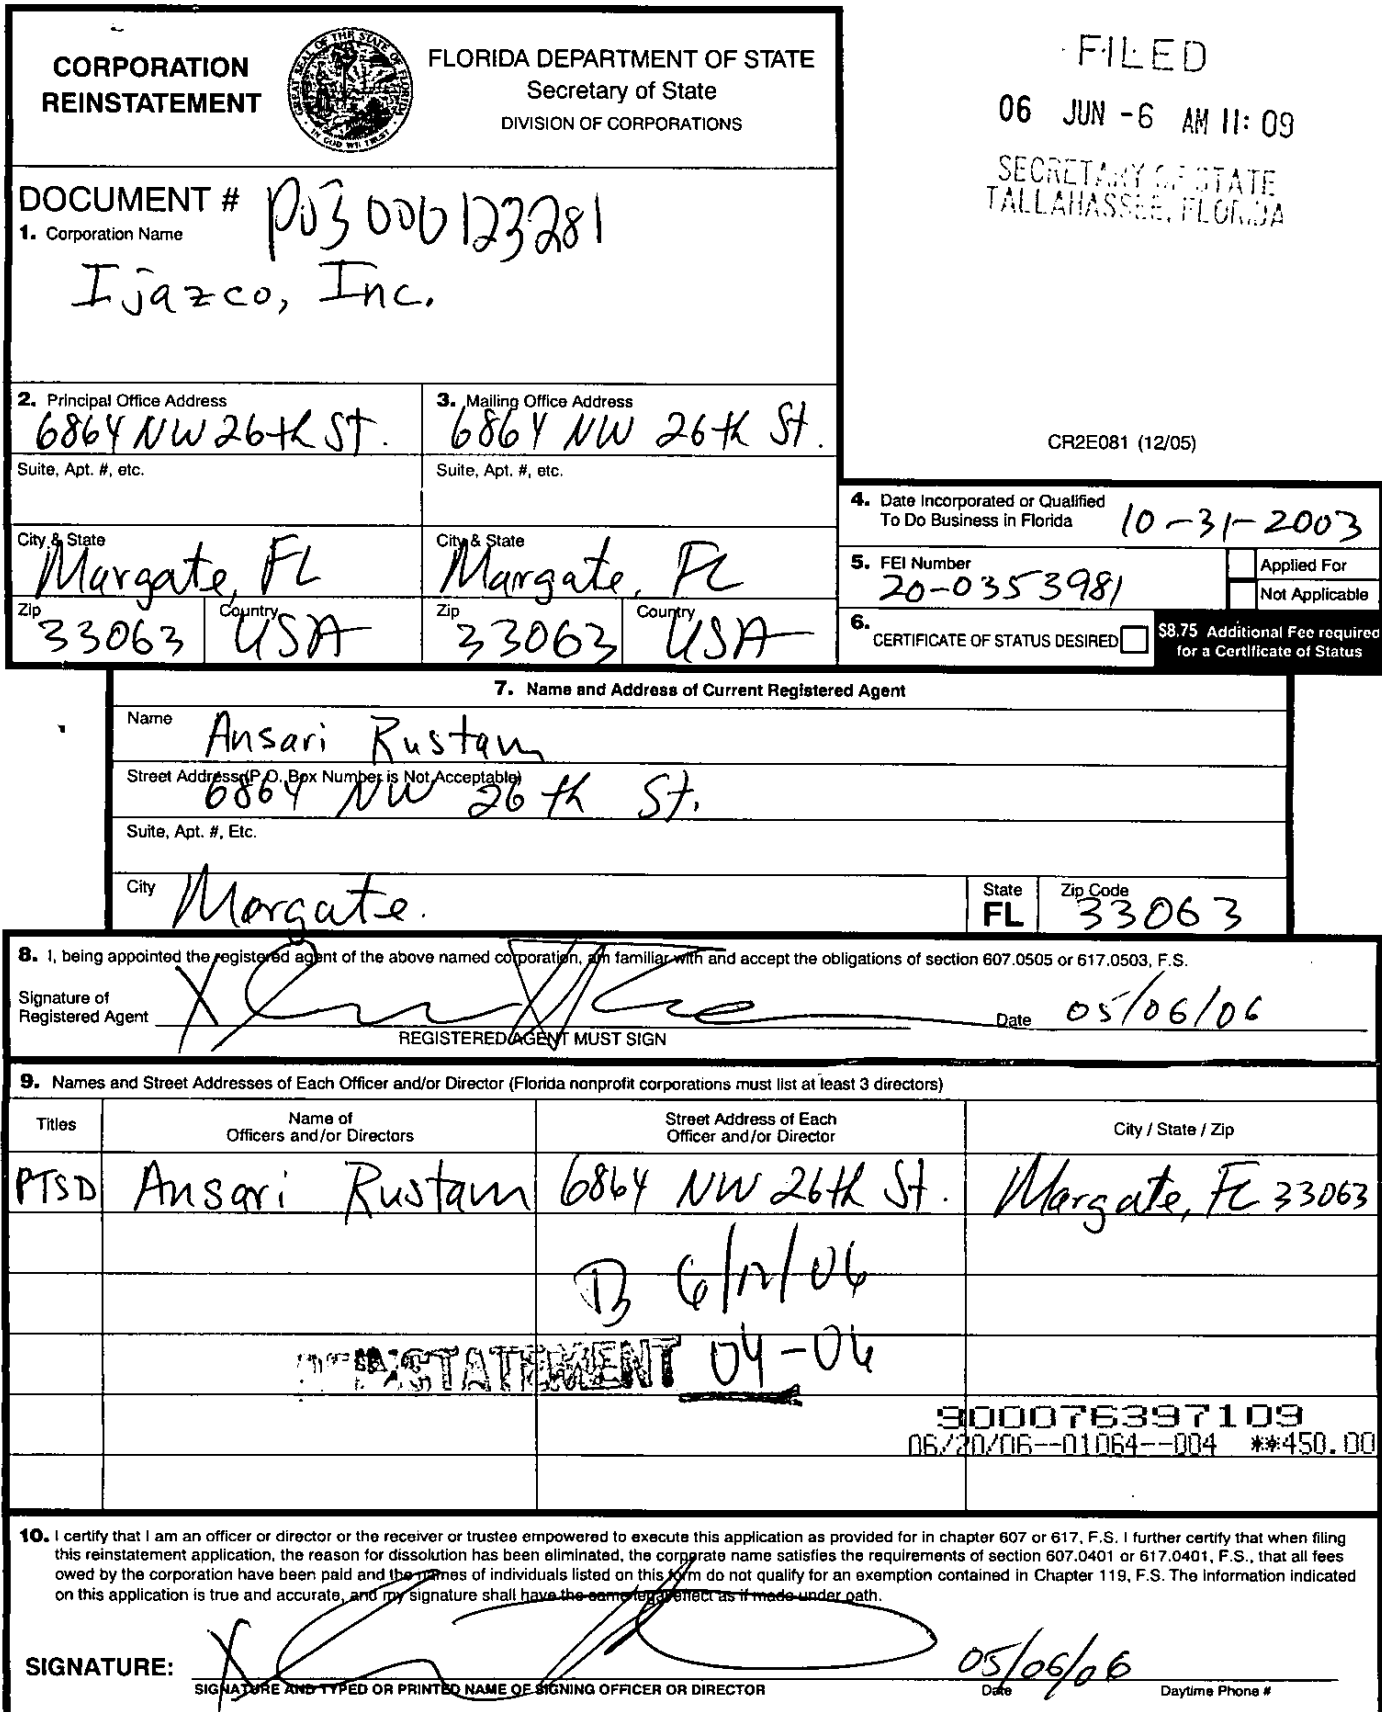 CORPORATION
REINSTATEMENT
GREAT SEAL OF THE STATE OF FLORIDA
IN GOD WE TRUST
FLORIDA DEPARTMENT OF STATE
Secretary of State
DIVISION OF CORPORATIONS
FILED
06 JUN -6 AM 11: 09
SECRETARY OF STATE
TALLAHASSEE, FLORIDA
DOCUMENT # P03000123281
1. Corporation Name
Ijazco, Inc.
2. Principal Office Address
6864 NW 26th St.
Suite, Apt. #, etc.
City & State
Margate, FL
Zip 33063 Country USA
3. Mailing Office Address
6864 NW 26th St.
Suite, Apt. #, etc.
City & State
Margate, FL
Zip 33063 Country USA
CR2E081 (12/05)
4. Date Incorporated or Qualified
To Do Business in Florida 10-31-2003
5. FEI Number
20-0353981
Applied For
Not Applicable
6. CERTIFICATE OF STATUS DESIRED
$8.75 Additional Fee required
for a Certificate of Status
7. Name and Address of Current Registered Agent
Name Ansari Rustam
Street Address (P.O. Box Number is Not Acceptable)
6864 NW 26th St.
Suite, Apt. #, Etc.
City Margate. State FL Zip Code 33063
8. I, being appointed the registered agent of the above named corporation, am familiar with and accept the obligations of section 607.0505 or 617.0503, F.S.
Signature of
Registered Agent X Date 05/06/06
REGISTERED AGENT MUST SIGN
9. Names and Street Addresses of Each Officer and/or Director (Florida nonprofit corporations must list at least 3 directors)
Titles
Name of
Officers and/or Directors
Street Address of Each
Officer and/or Director
City / State / Zip
PTSD Ansari Rustam 6864 NW 26th St. Margate, FL 33063
6/12/06
REINSTATEMENT 04-06
900076397109
06/20/06--01064--004 **450.00
10. I certify that I am an officer or director or the receiver or trustee empowered to execute this application as provided for in chapter 607 or 617, F.S. I further certify that when filing
this reinstatement application, the reason for dissolution has been eliminated, the corporate name satisfies the requirements of section 607.0401 or 617.0401, F.S., that all fees
owed by the corporation have been paid and the names of individuals listed on this form do not qualify for an exemption contained in Chapter 119, F.S. The information indicated
on this application is true and accurate, and my signature shall have the same legal effect as if made under oath.
SIGNATURE: X 05/06/06
SIGNATURE AND TYPED OR PRINTED NAME OF SIGNING OFFICER OR DIRECTOR Date Daytime Phone #